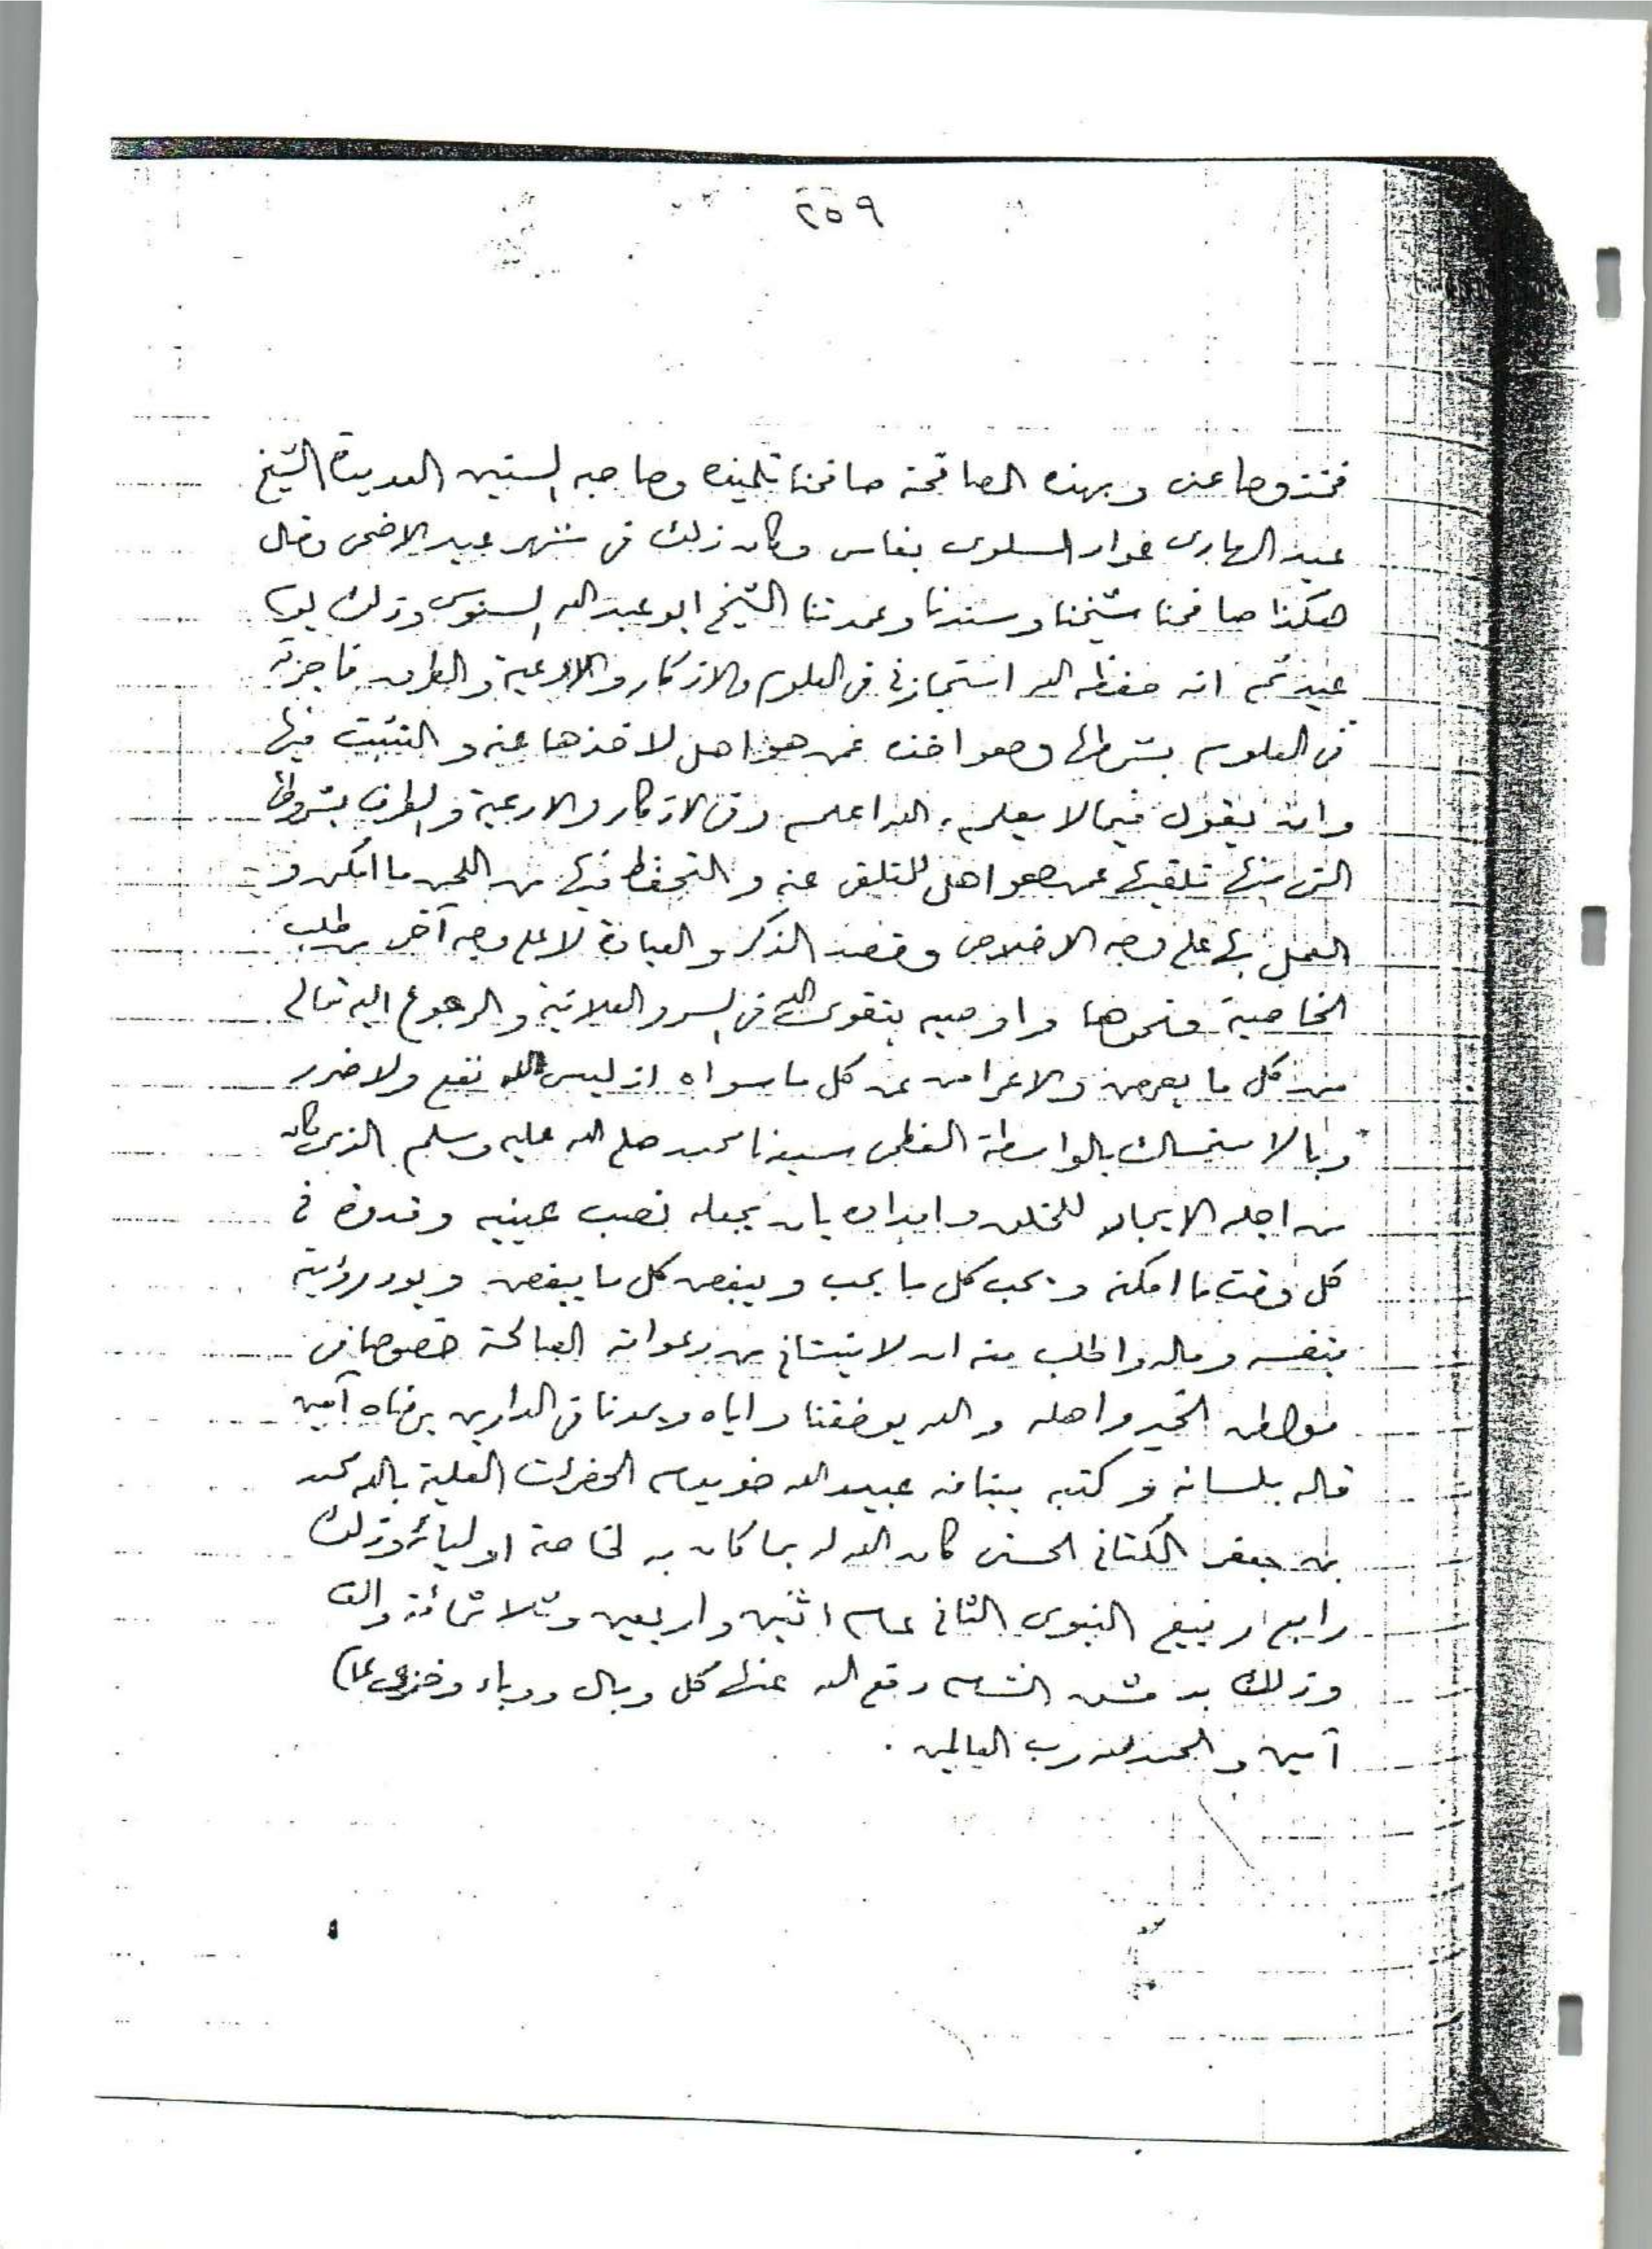 ٢٥٩
فخذوها عني وبهذه المصافحة صافحنا تلميذه وصاحبه السنين العديدة الشيخ
عبد الهادي عواد السلوي بفاس وكان ذلك في شهر عيد الاضحى وقال
هكذا صافحنا شيخنا وسندنا وعمدتنا الشيخ ابو عبد الله السنوسي وذلك يوم
عيد ثم انه حفظه الله استجازني في العلوم والاذكار والادعية والطرق فاجزته
في العلوم بشرطها وهو اخذه عمن هو اهل لاخذها عنه والتثبت فيها
وان يقول فيما لا يعلم، الله اعلم وفي الاذكار والادعية والطرق بشروطها
التي منها تلقيها عمن هو اهل للتلقي عنه والتحفظ فيها من اللحن ما امكن و
العمل بها على وجه الاخلاص وقصد الذكر والعبادة لا على وجه آخر من طلب
الخاصية ونحوها واوصيه بتقوى الله في السر والعلانية والرجوع اليه تعالى
من كل ما يعرض والاعراض عن كل ما سواه اذ ليس نفع ولا ضرر
وبالاستمساك بالواسطة العظمى سيدنا محمد صلى الله عليه وسلم الذي كان
من اجله الايجاد للخلق وامداده بان يجعله نصب عينيه وقدوة في
كل وقت ما امكنه ويحب كل ما يحب ويبغض كل ما يبغض ويود رؤيته
بنفسه وماله واطلب منه ان لا ينساني من دعواته الصالحة خصوصا في
مواطن الخير واهله والله يوفقنا واياه ويمدنا في الدارين برضاه آمين
قاله بلسانه وكتبه ببنانه عبيد الله خويدم الحضرات العلية بالله محمد
بن جعفر الكتاني الحسني كان الله له بما كان به لخاصة اوليائه وذلك
رابع ربيع النبوي الثاني عام اثنين واربعين وثلاثمائة والف
وذلك بدمشق الشام دفع الله عنها كل وبال ووباء
آمين والحمد لله رب العالمين .